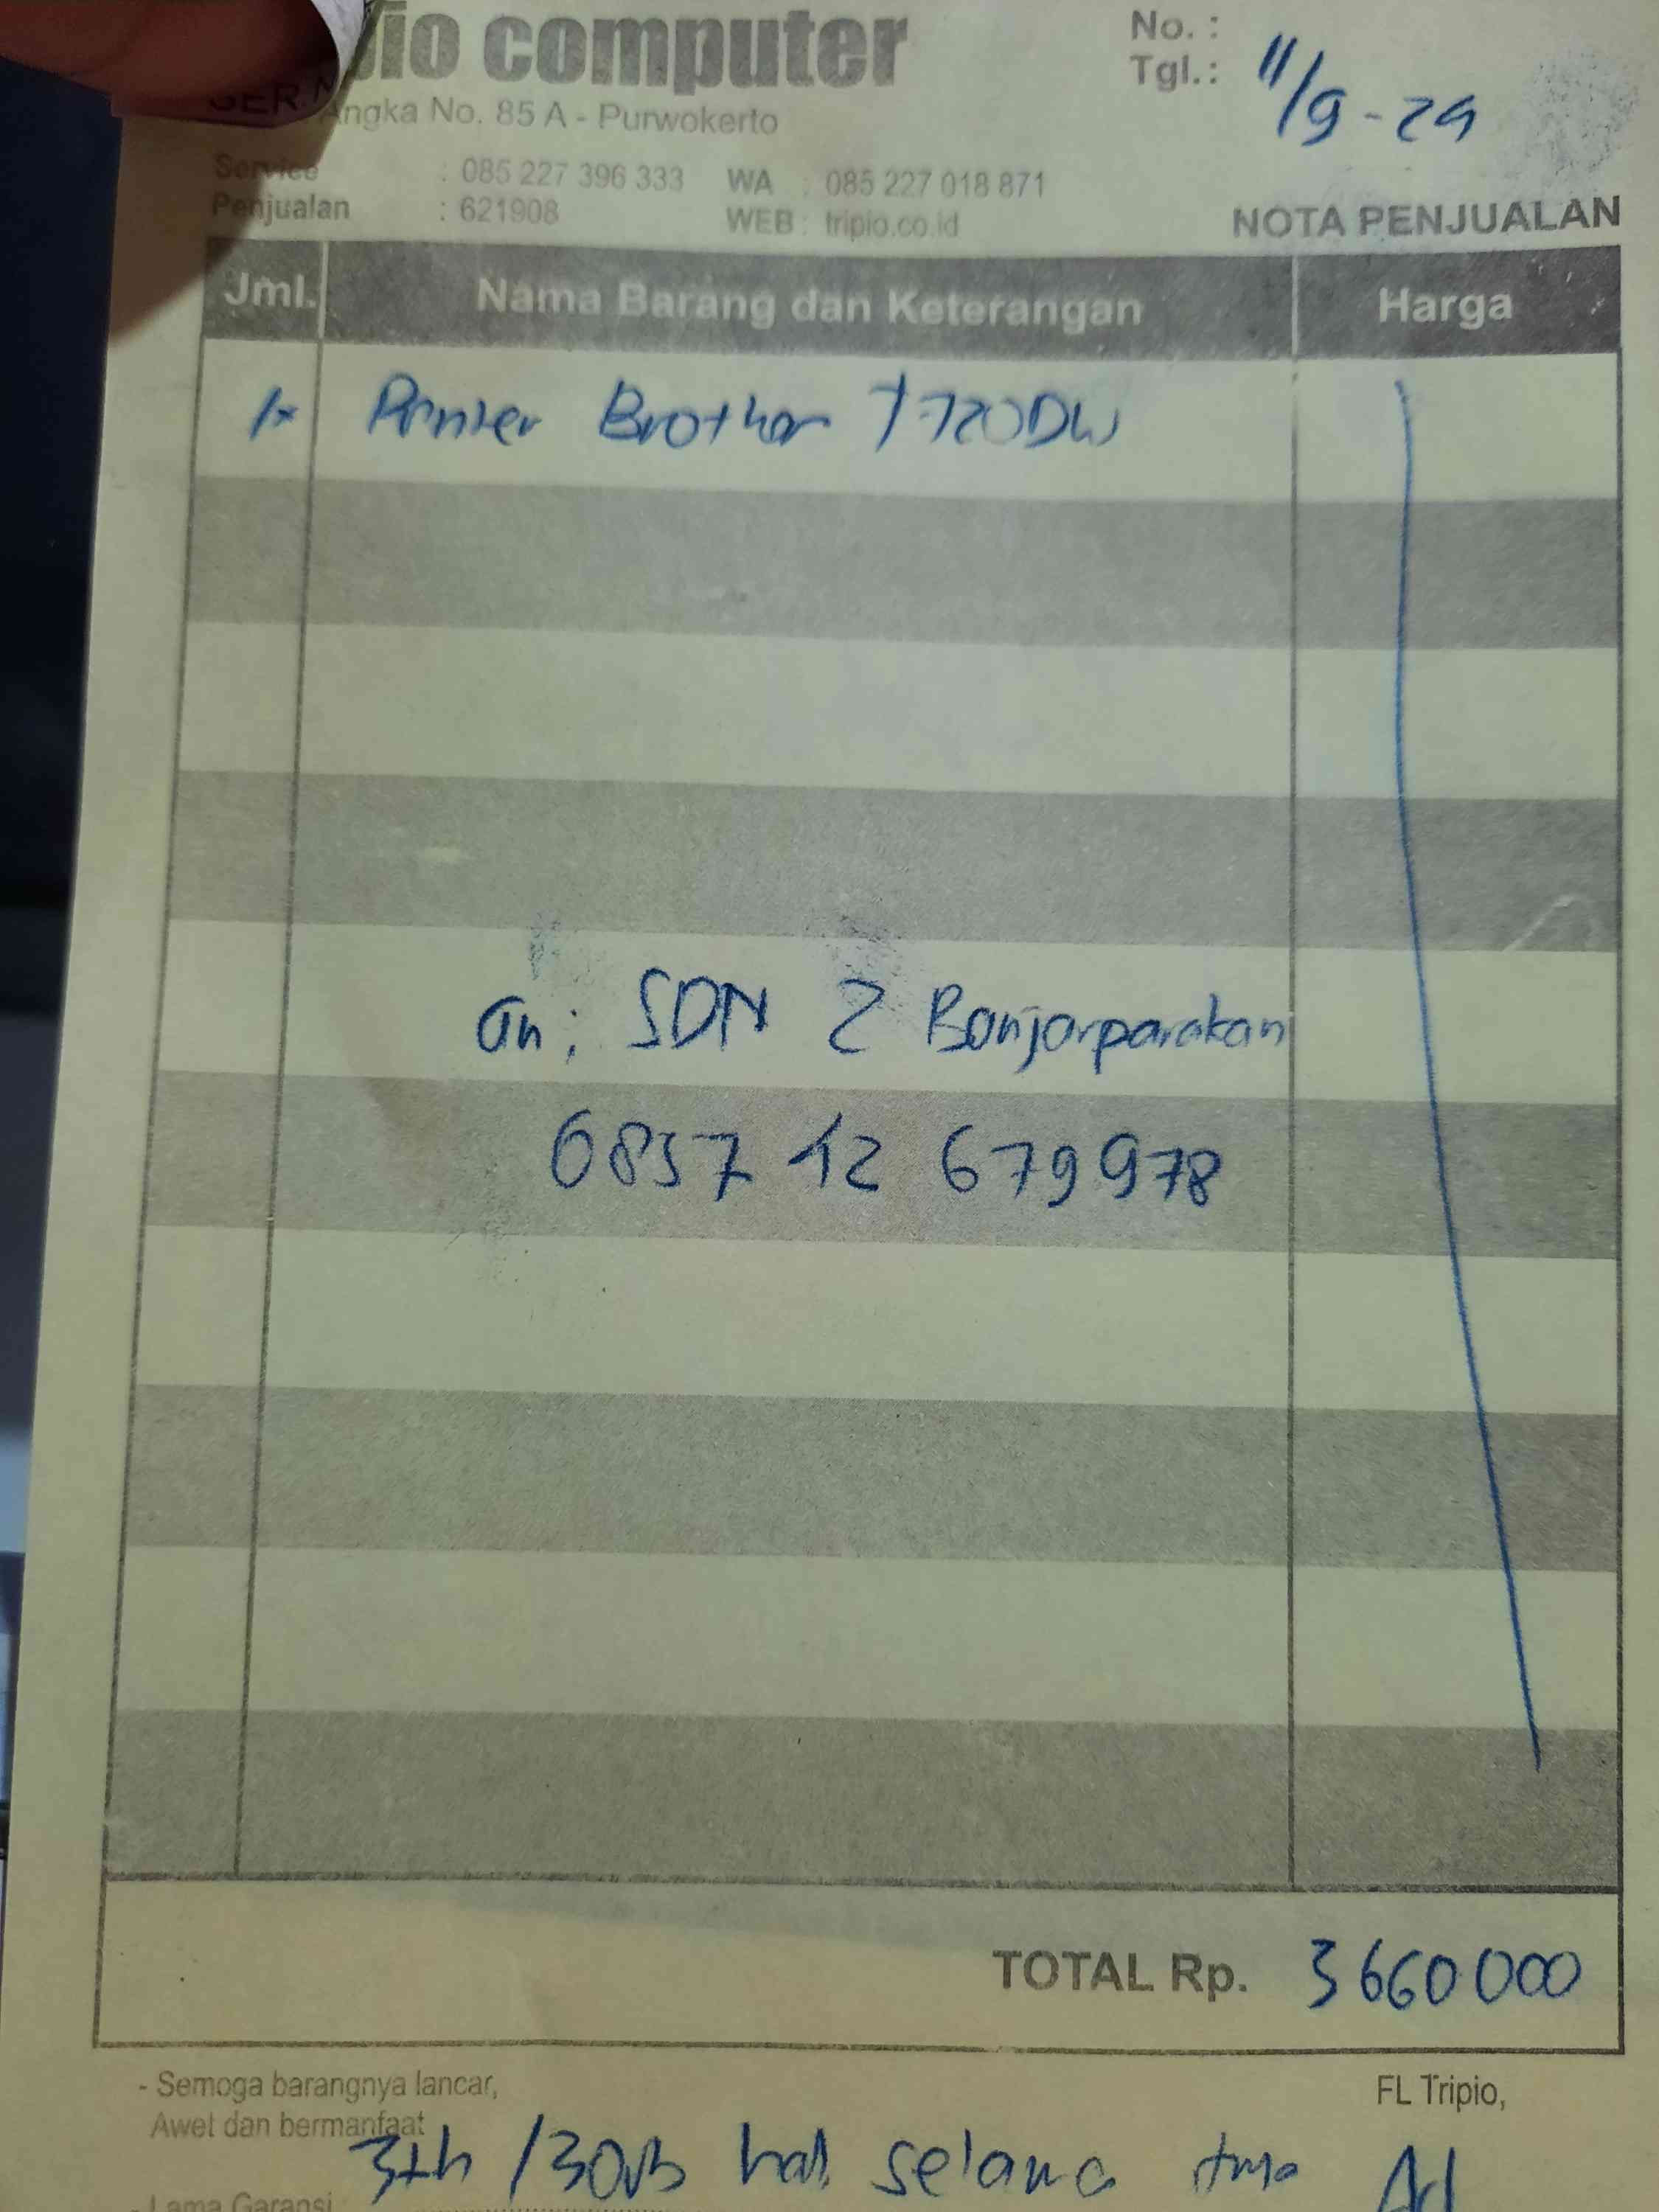 io computer
No. :
Tgl.: 11/9-24
Angka No. 85 A - Purwokerto
Service : 085 227 396 333 WA : 085 227 018 871
Penjualan : 621908 WEB : tripio.co.id
NOTA PENJUALAN
Jml. Nama Barang dan Keterangan Harga
1x Printer Brother T720DW
an; SDN 2 Banjarparakan
0857 12 679978
TOTAL Rp. 3660000
- Semoga barangnya lancar,
Awet dan bermanfaat
FL Tripio,
3th / 30rb hal selama
- Lama Garansi